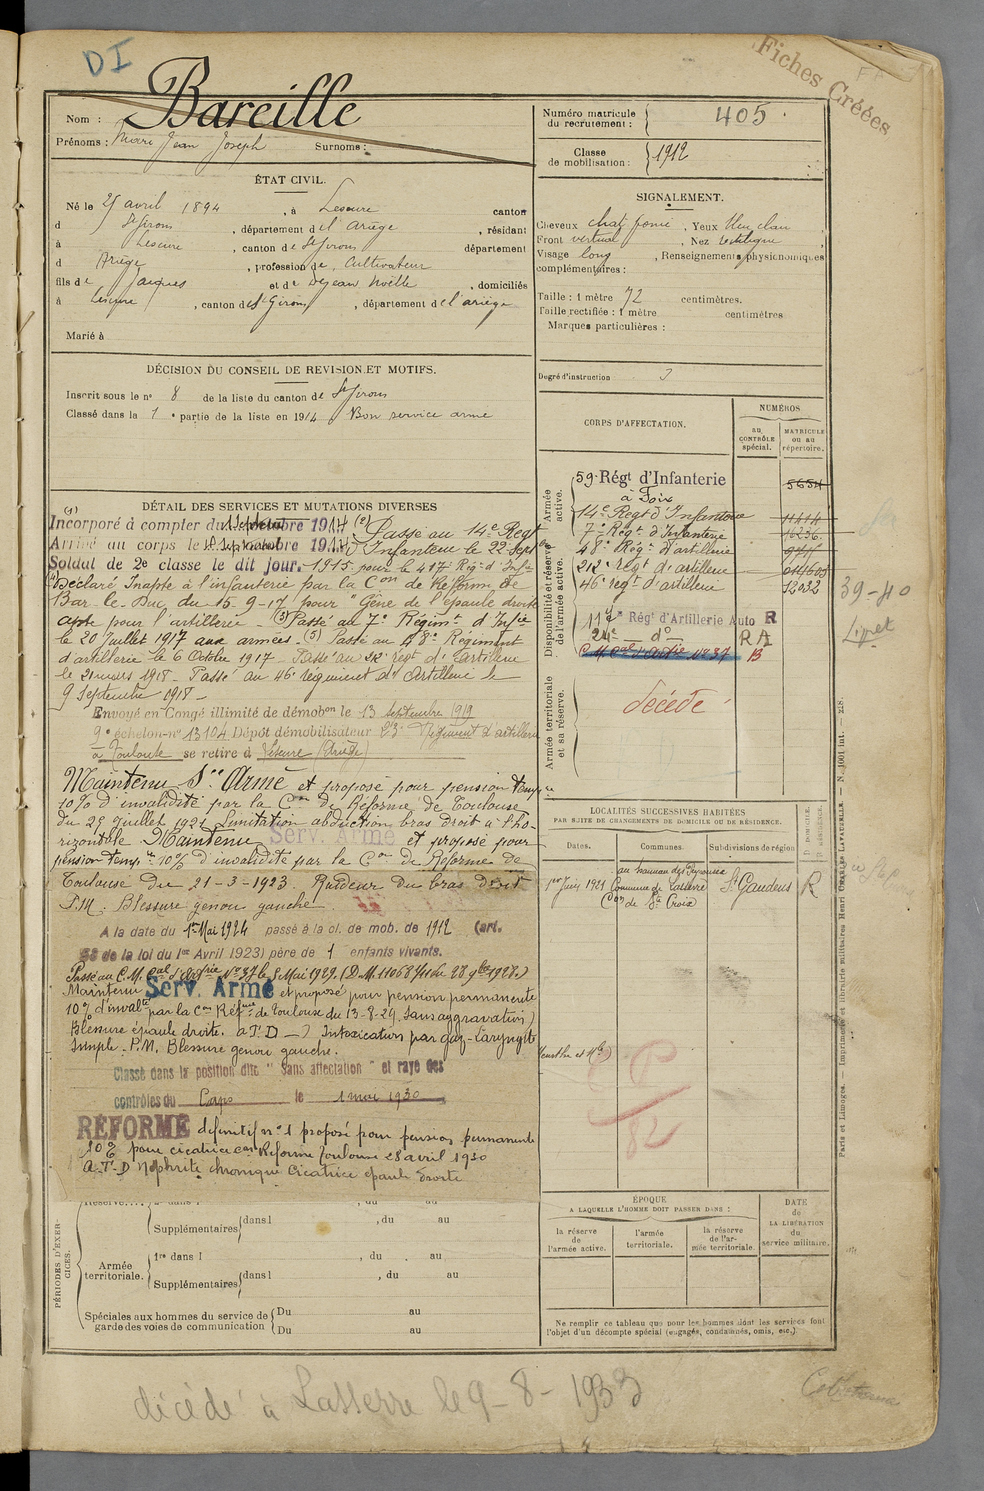 DI
Fiches Créées
Nom : Bareille
Prénoms : Jean Joseph Surnoms :
Numéro matricule du recrutement : 405
Classe de mobilisation : 1912
ÉTAT CIVIL.
Né le 25 avril 1894, à Lescure canton
d St Girons, département de l'Ariège, résidant
à Lescure, canton de St Girons département
d Ariège, profession de Cultivateur
fils de Jacques et de Dejean Noëlle, domiciliés
à Lescure, canton de St Girons, département de l'ariège
Marié à
SIGNALEMENT.
Cheveux chat foncé, Yeux
Front vertical, Nez rectiligne
Visage long, Renseignements physionomiques
complémentaires :
Taille : 1 mètre 72 centimètres.
Taille rectifiée : 1 mètre centimètres
Marques particulières :
Degré d'instruction 3
DÉCISION DU CONSEIL DE REVISION ET MOTIFS.
Inscrit sous le n° 8 de la liste du canton de St Girons
Classé dans la 1e partie de la liste en 1914 Bon service armé
CORPS D'AFFECTATION.
NUMÉROS
au CONTRÔLE spécial.
MATRICULE ou au répertoire.
Armée active.
59e Régt d'Infanterie
à Foix
14e Regt d'Infanterie 11414
7e Régt d'Infanterie 16236
Disponibilité et réserve de l'armée active.
48e Régt d'artillerie
212e régt d'artillerie
46e regt d'artillerie 12032
117e Rég! d'Artillerie Auto R
24e do RA
C.M. Cal d'Artie No 37 B
Armée territoriale et sa réserve.
décédé
39-40
DÉTAIL DES SERVICES ET MUTATIONS DIVERSES
(1) Incorporé à compter du 1 Septembre 1914 (2) Passé au 14e Regt
Arrivé au corps le Septembre 1914 d'Infanterie le 22 Sept
Soldat de 2e classe le dit jour. 1915 pour le 417 Régt d'Inf
(4) Déclaré Inapte à l'infanterie par la Con de Reforme de
Bar-le-Duc du 15-9-17 pour "Gène de l'épaule droite
apte pour l'artillerie - (3) Passé au 7e Régimt d'Infie
le 20 Juillet 1917 aux armées. (5) Passé au 48e Régiment
d'artillerie le 6 Octobre 1917 - Passé au 212e régt d'artillerie
le 21 mars 1918 - Passé au 46e régiment d'Artillerie le
9 Septembre 1918 -
Envoyé en Congé illimité de démobon le 13 septembre 1919
9e échelon-no 13104 Dépôt démobilisateur 23e Régiment d'artillerie
à Toulouse se retire à Lescure (Ariège)
Maintenu Sce Armé et proposé pour pension temp
10% d'invalidité par la Con de Réforme de Toulouse
du 29 juillet 1921 Limitation abduction bras droit à l'ho-
rizontale Maintenu Serv. Armé et proposé pour
pension temp. 10% d'invalidité par la Con de Réforme de
Toulouse du 21-3-1923. Raideur du bras droit
P.M. Blessure genou gauche.
A la date du 1er Mai 1924 passé à la cl. de mob. de 1912 (art.
58 de la loi du 1er Avril 1923) père de 1 enfants vivants.
Passé au C.M. Cal d'Artie No 37 le 1 Mai 1929.
Maintenu Serv. Armé et proposé pour pension permanente
10% d'invalté par la Con Réfme de Toulouse du 13-8-29. Sans aggravation)
Blessure épaule droite. a T D - Intoxication par gaz - Laryngite
simple - P.M. Blessure genou gauche.
Classé dans la position dite "Sans affectation" et rayé des
contrôles du Corps le 1 mai 1930
RÉFORMÉ définitif no 1 proposé pour pension permanente
10% pour cicatrice Con Réforme Toulouse 28 avril 1930
A.T.D Néphrite chronique Cicatrice épaule droite
LOCALITÉS SUCCESSIVES HABITÉES
PAR SUITE DE CHANGEMENTS DE DOMICILE OU DE RÉSIDENCE.
Dates. Communes. Subdivisions de région D. DOMICILE. R. RÉSIDENCE.
1er Juin 1921 au hameau des
Commune de Lasserre St Gaudens R
Con de Ste Croix
82
PÉRIODES D'EXERCICES.
Supplémentaires dans l , du au
Armée territoriale. 1re dans l , du au
Supplémentaires dans l , du au
Spéciales aux hommes du service de garde des voies de communication
Du au
Du au
ÉPOQUE
A LAQUELLE L'HOMME DOIT PASSER DANS :
la réserve de l'armée active.
l'armée territoriale.
la réserve de l'armée territoriale.
DATE de LA LIBÉRATION du service militaire.
Ne remplir ce tableau que pour les hommes dont les services font
l'objet d'un décompte spécial (engagés, condamnés, omis, etc.)
Paris et Limoges. — Imprimerie et librairie militaires Henri CHARLES-LAVAUZELLE. — N. 1001 int. — 218.
décédé à Lasserre le 9-8-1933